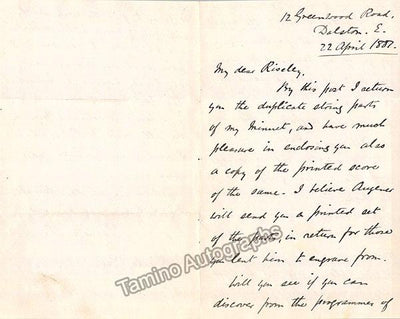 12 Greenwood Road,
Dalston. E.
22 April 1887.
My dear Riseley,
By this post I return
you the duplicate string parts
of my Minuet, and have much
pleasure in enclosing you also
a copy of the printed score
of the same. I believe Augener
will send you a printed set
of the parts, in return for those
you lent him to engrave from.
Will you see if you can
discover from the programmes of
Tamino Autographs